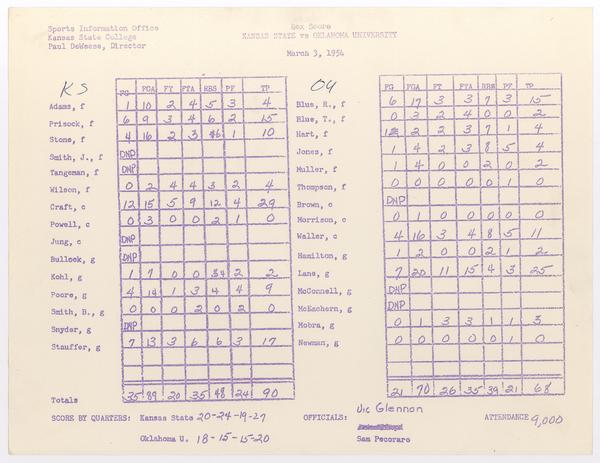 Sports Information Office
Kansas State College
Paul DeWeese, Director
Box Score
KANSAS STATE vs OKLAHOMA UNIVERSITY
March 3, 1954
KS
FG FGA FT FTA RBS PF TP
Adams, f 1 10 2 4 5 3 4
Prisock, f 6 9 3 4 6 2 15
Stone, f 4 16 2 3 6 1 10
Smith, J., f DNP
Tangeman, f DNP
Wilson, f 0 2 4 4 3 2 4
Craft, c 12 15 5 9 12 4 29
Powell, c 0 3 0 0 2 1 0
Jung, c DNP
Bullock, g DNP
Kohl, g 1 7 0 0 2 2
Poore, g 4 14 1 3 4 4 9
Smith, B., g 0 0 0 2 0 2 0
Snyder, g DNP
Stauffer, g 7 13 3 6 6 3 17
Totals 35 89 20 35 48 24 90
OU
FG FGA FT FTA RBS PF TP
Blue, R., f 6 17 3 3 7 3 15
Blue, T., f 0 3 2 4 0 0 2
Hart, f 2 2 3 7 1 4
Jones, f 1 4 2 3 8 5 4
Muller, f 1 4 0 0 2 0 2
Thompson, f 0 0 0 0 0 1 0
Brown, c DNP
Morrison, c 0 1 0 0 0 0 0
Waller, c 4 16 3 4 8 5 11
Hamilton, g 1 2 0 0 2 1 2
Lane, g 7 20 11 15 4 3 25
McConnell, g DNP
McEachern, g DNP
Mobra, g 0 1 3 3 1 1 3
Newman, g 0 0 0 0 0 1 0
21 70 26 35 39 21 68
SCORE BY QUARTERS: Kansas State 20-24-19-27
Oklahoma U. 18-15-15-20
OFFICIALS: Vic Glennon
Sam Pecoraro
ATTENDANCE 9,000